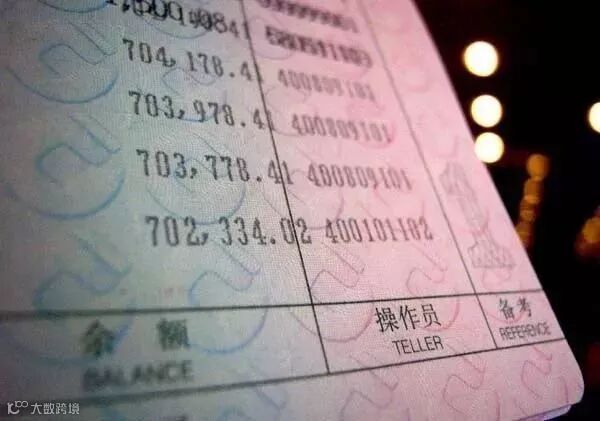 704,178.41 400809101
703,978.41 400809101
703,778.41 400809101
702,334.02 400101182
余 额 操作员 备考
BALANCE TELLER REFERENCE
大数跨境